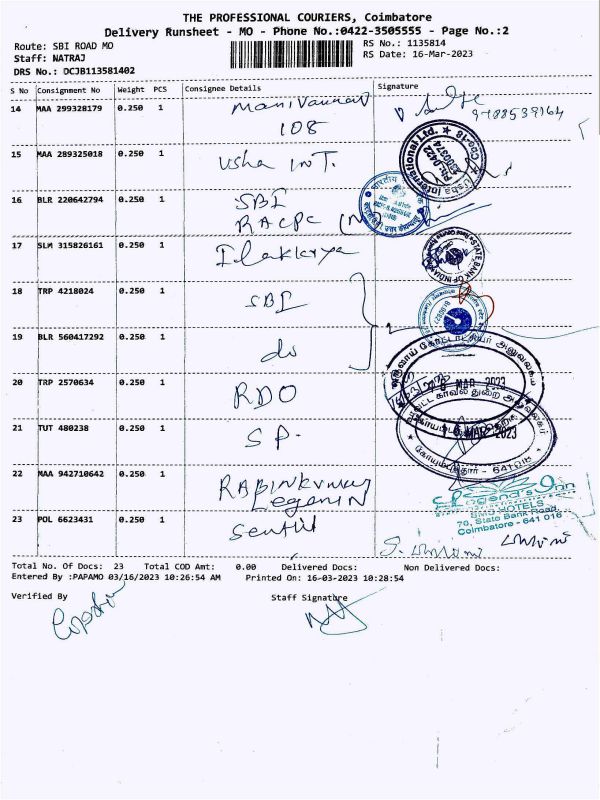 THE PROFESSIONAL COURIERS, Coimbatore
Delivery Runsheet - MO - Phone No.:0422-3505555 - Page No.:2
Route: SBI ROAD MO
RS No.: 1135814
Staff: NATRAJ
RS Date: 16-Mar-2023
DRS No.: DCJB113581402
S No Consignment No Weight PCS Consignee Details Signature
14 MAA 299328179 0.250 1 Manivannan
108
15 MAA 289325018 0.250 1 Usha INT.
16 BLR 220642794 0.250 1 SBI
RACPC
17 SLM 315826161 0.250 1 Ilakkiya
STATE BANK OF INDIA
18 TRP 4218024 0.250 1 SBI
19 BLR 560417292 0.250 1 do
20 TRP 2570634 0.250 1 RDO
MAR 2023
21 TUT 480238 0.250 1 S P.
16 MAR 2023
22 MAA 942710642 0.250 1
Legend's Inn
HOTELS
76, State Bank Road,
Coimbatore - 641 018
23 POL 6623431 0.250 1 Senthil
Total No. Of Docs: 23 Total COD Amt: 0.00 Delivered Docs: Non Delivered Docs:
Entered By :PAPAMO 03/16/2023 10:26:54 AM Printed On: 16-03-2023 10:28:54
Verified By Staff Signature